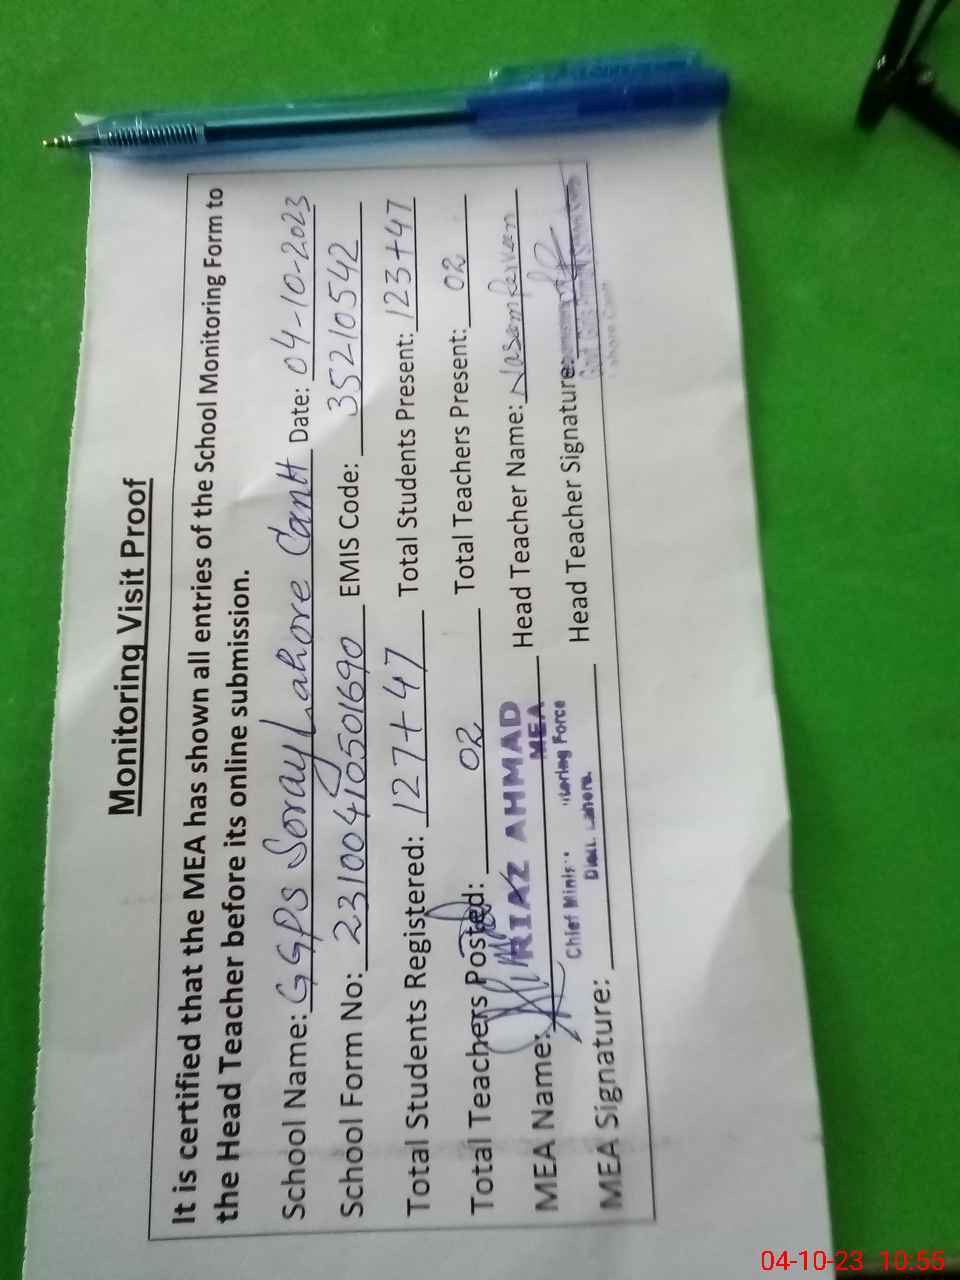 Monitoring Visit Proof
It is certified that the MEA has shown all entries of the School Monitoring Form to
the Head Teacher before its online submission.
School Name: GGPS Soray Lahore Cantt Date: 04-10-2023
School Form No: 23100410501690 EMIS Code: 35210542
Total Students Registered: 127+47 Total Students Present: 123+47
Total Teachers Posted: 02 Total Teachers Present: 02
MEA Name: RIAZ AHMAD Head Teacher Name: Nasem Perveen
MEA
Chief Minis itoring Force
Distt. Lahore.
MEA Signature: Head Teacher Signature:
Lahore Cantt
04-10-23 10:55